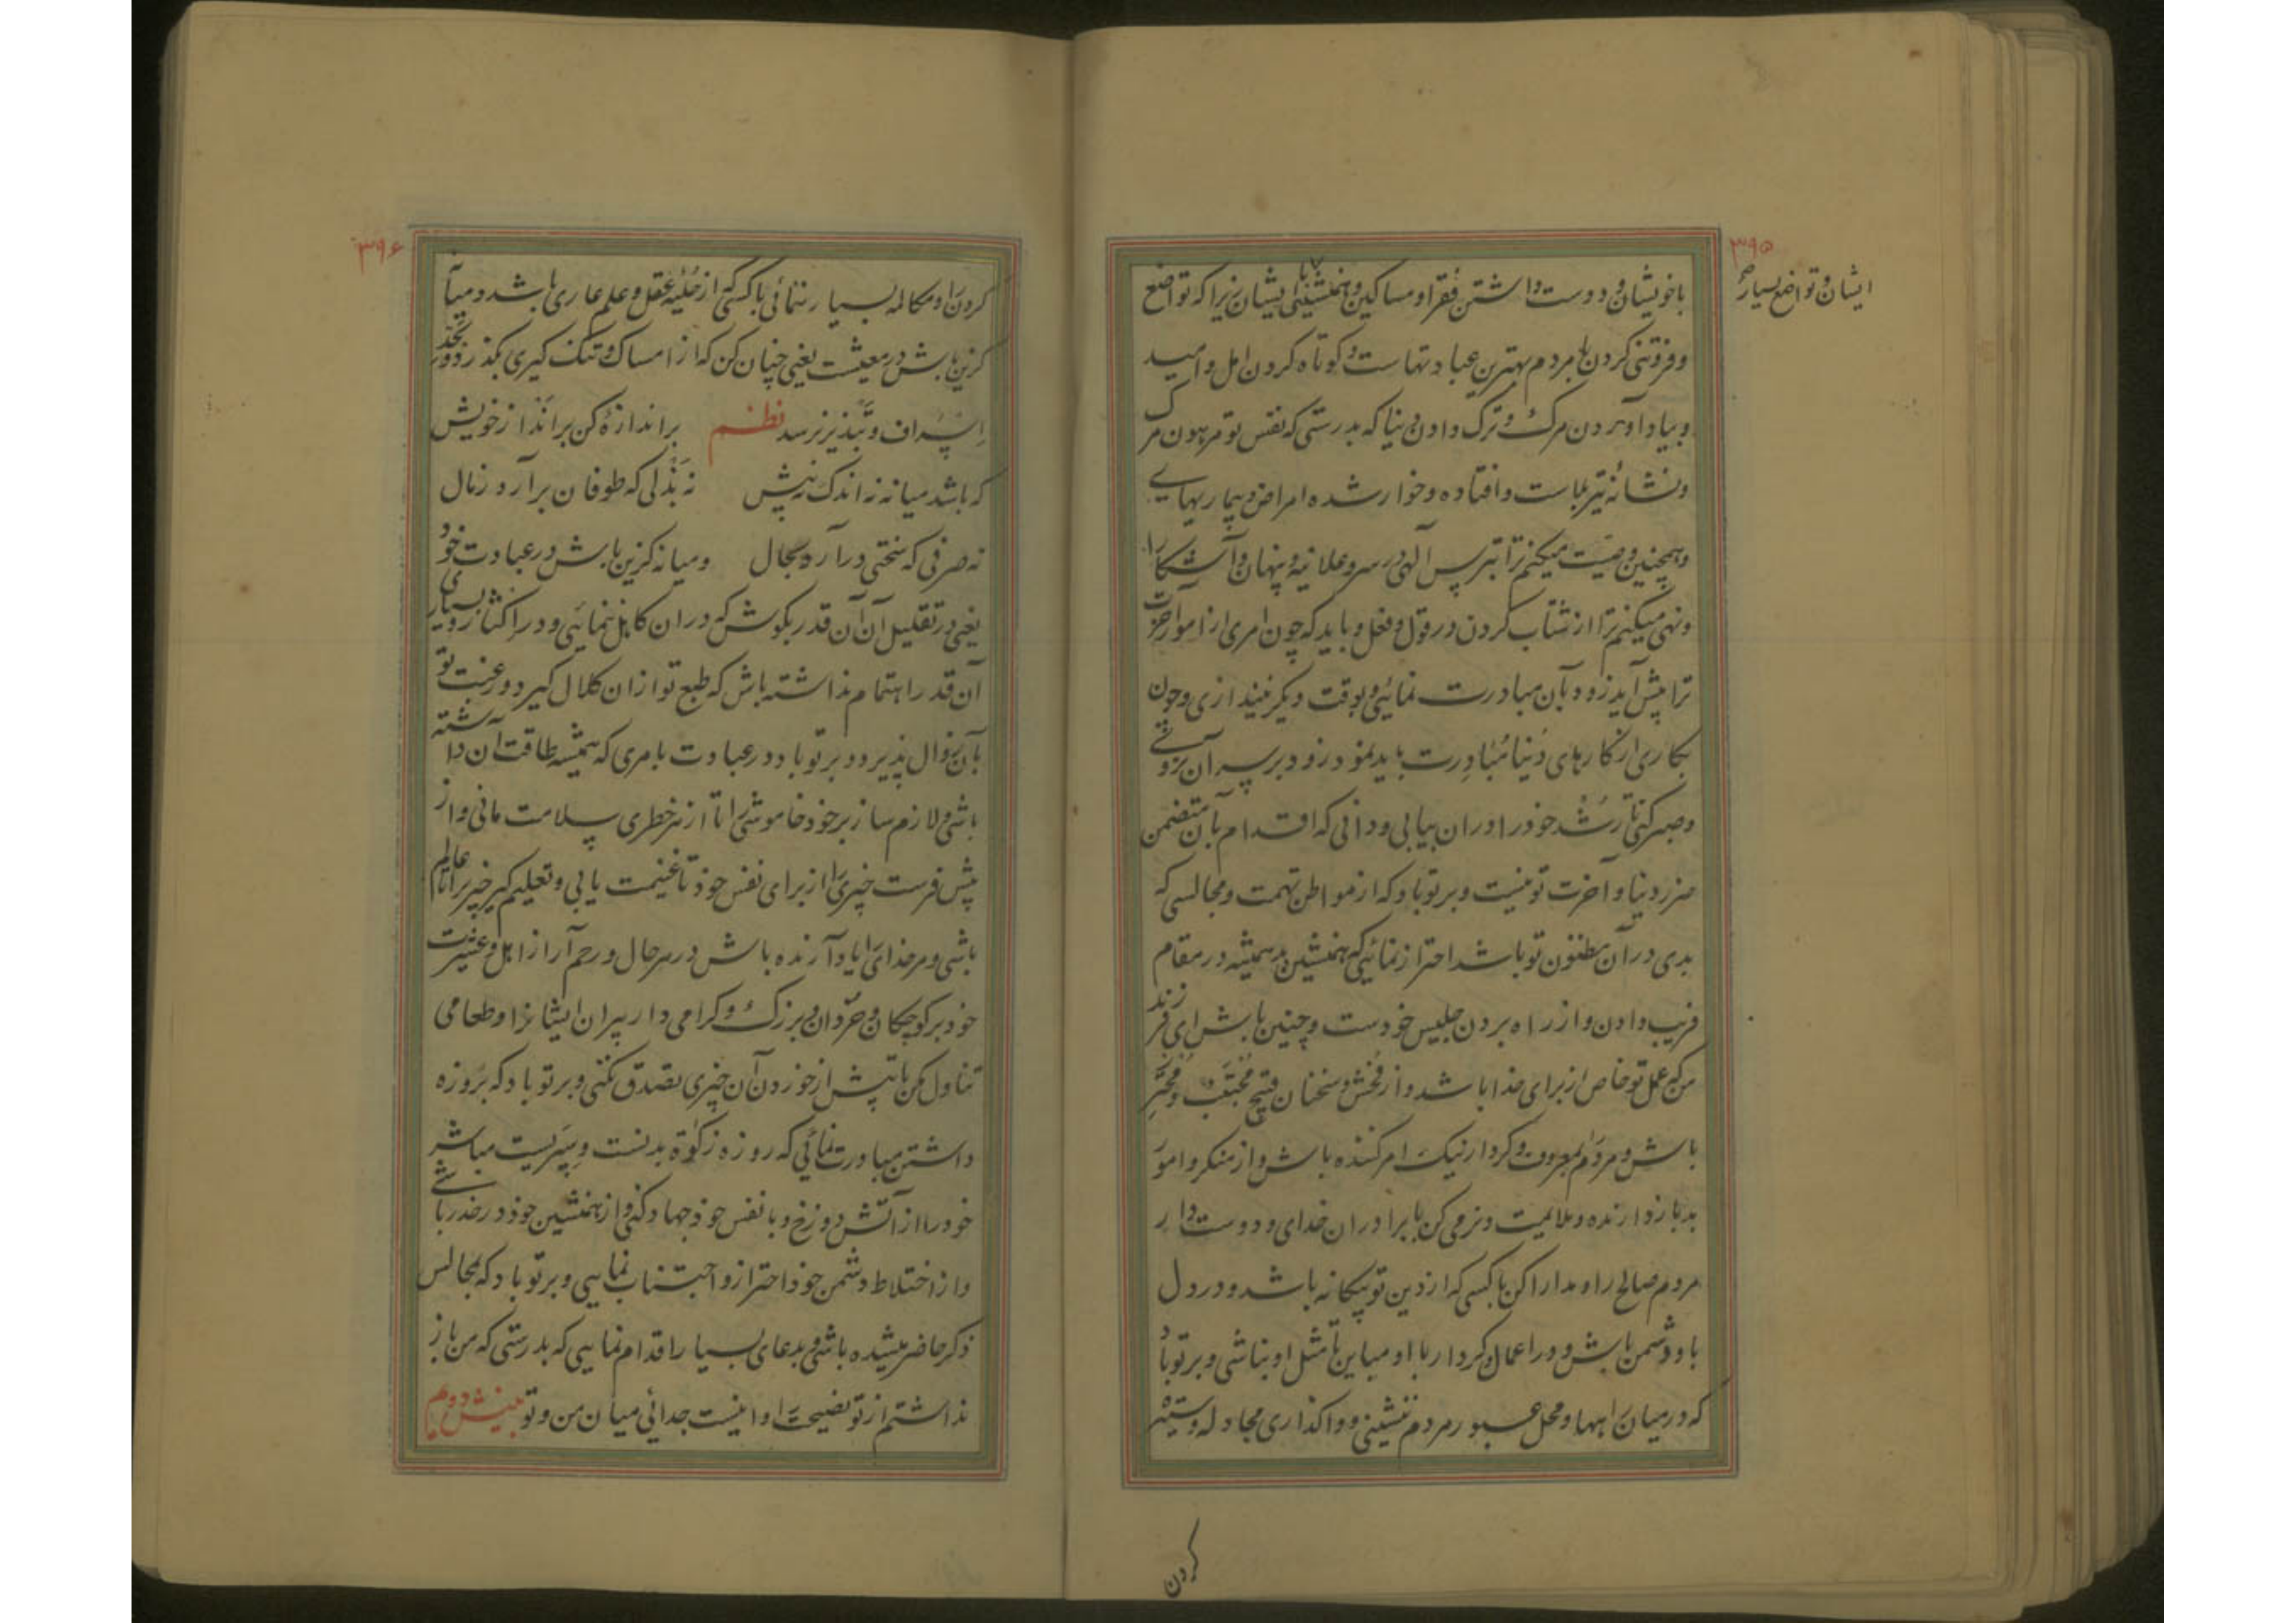 ۳۹۵
ایشان و تواضع بسیار
با خویشان و دوست داشتن فقرا و مساکین و همنشینی با ایشان زیرا که تواضع
و فروتنی کردن با مردم بهترین عبادتهاست و کوتاه کردن امل و امید
و بیاد آوردن مرک و ترک دادن دنیا که بدرستی که نفس تو مرهون مرک
و نشانه تیر بلاست و افتاده و خوار شده امراض و بیماریهای
و همچنین وصیت میکنم ترا بترس آلهی در سر و علانیه و پنهان و آشکارا
و نهی میکنم ترا از شتاب کردن در قول و فعل و باید که چون امری از امور آخرت
ترا پیش آید زود بآن مبادرت نمائی و بوقت دیکر نیندازی و چون
بکاری از کارهای دنیا مبادرت باید نمود زود بر سر آن نروی
و صبر کنی تا رشد خود را در ان بیابی و دانی که اقدام بآن متضمن
ضرر دنیا و آخرت تو نیست و بر تو باد که از مواطن تهمت و مجالسی که
بدی در آن مظنون تو باشد احتراز نمائی که همنشین بد همیشه در مقام
فریب دادن و از راه بردن جلیس خودست و چنین باش ای فرزند
من که عمل تو خاص از برای خدا باشد و از فحش و سخنان قبیح مجتنب و محترز
باش و مردم را بمعروف و کردار نیک امر کننده باش و از منکر و امور
بد باز دارنده و ملایمت و نرمی کن با برادران خدای و دوست دار
مردم صالح را و مدارا کن با کسی که از دین تو بیکانه باشد و در دل
با او دشمن باش و در اعمال و کردار با او مباین تا مثل او نباشی و بر تو باد
که در میان راهها و محل عبور مردم ننشینی و واکذاری مجادله و ستیزه
کردن
۳۹۶
کردن را و مکالمه بسیار ننمائی با کسی که از حلیه عقل و علم عاری باشد و میانه
کزین باش در معیشت یعنی چنان کن که از امساک و تنک کیری بکذرد و بحد
اسراف و تبذیر نرسد نظم براندازه کن برانداز خویش
که باشد میانه نه اندک نه بیش نه بذلی که طوفان برآرد ز مال
نه صرفی که سختی درآرد بحال و میانه کزین باش در عبادت خود
یعنی در تقلیل آن آن قدر بکوش که در ان کاهلی ننمائی و در اکثار و بسیاری
آن قدر اهتمام نداشته باش که طبع تو از ان کلال کیرد و رغبت تو
بآن زوال پذیرد و بر تو باد در عبادت بامری که همیشه طاقت آن داشته
باشی و لازم ساز بر خود خاموشی را تا از هر خطری سلامت مانی و از
پیش فرست خیری را از برای نفس خود تا غنیمت یابی و تعلیم کیر خیر را تا عالم
باشی و مر خدای را یاد آرنده باش در هر حال و رحم آر از اهل و عشیرت
خود بر کوچکان و خردان و بزرک و کرامی دار پیران ایشانرا و طعامی
تناول مکن تا پیش از خوردن آن چیزی تصدق نکنی و بر تو باد که بروزه
داشتن مبادرت نمائی که روزه زکوة بدنست و سپریست مباشر
خود را از آتش دوزخ و با نفس خود جهاد کن و از همنشین خود در حذر باشی
و از اختلاط دشمن خود احتراز و اجتناب نمایی و بر تو باد که بمجالس
ذکر حاضر میشده باشی و بدعای بسیار اقدام نمایی که بدرستی که من باز
نداشتم از تو نصیحت را و اینست جدائی میان من و تو بینش دوم